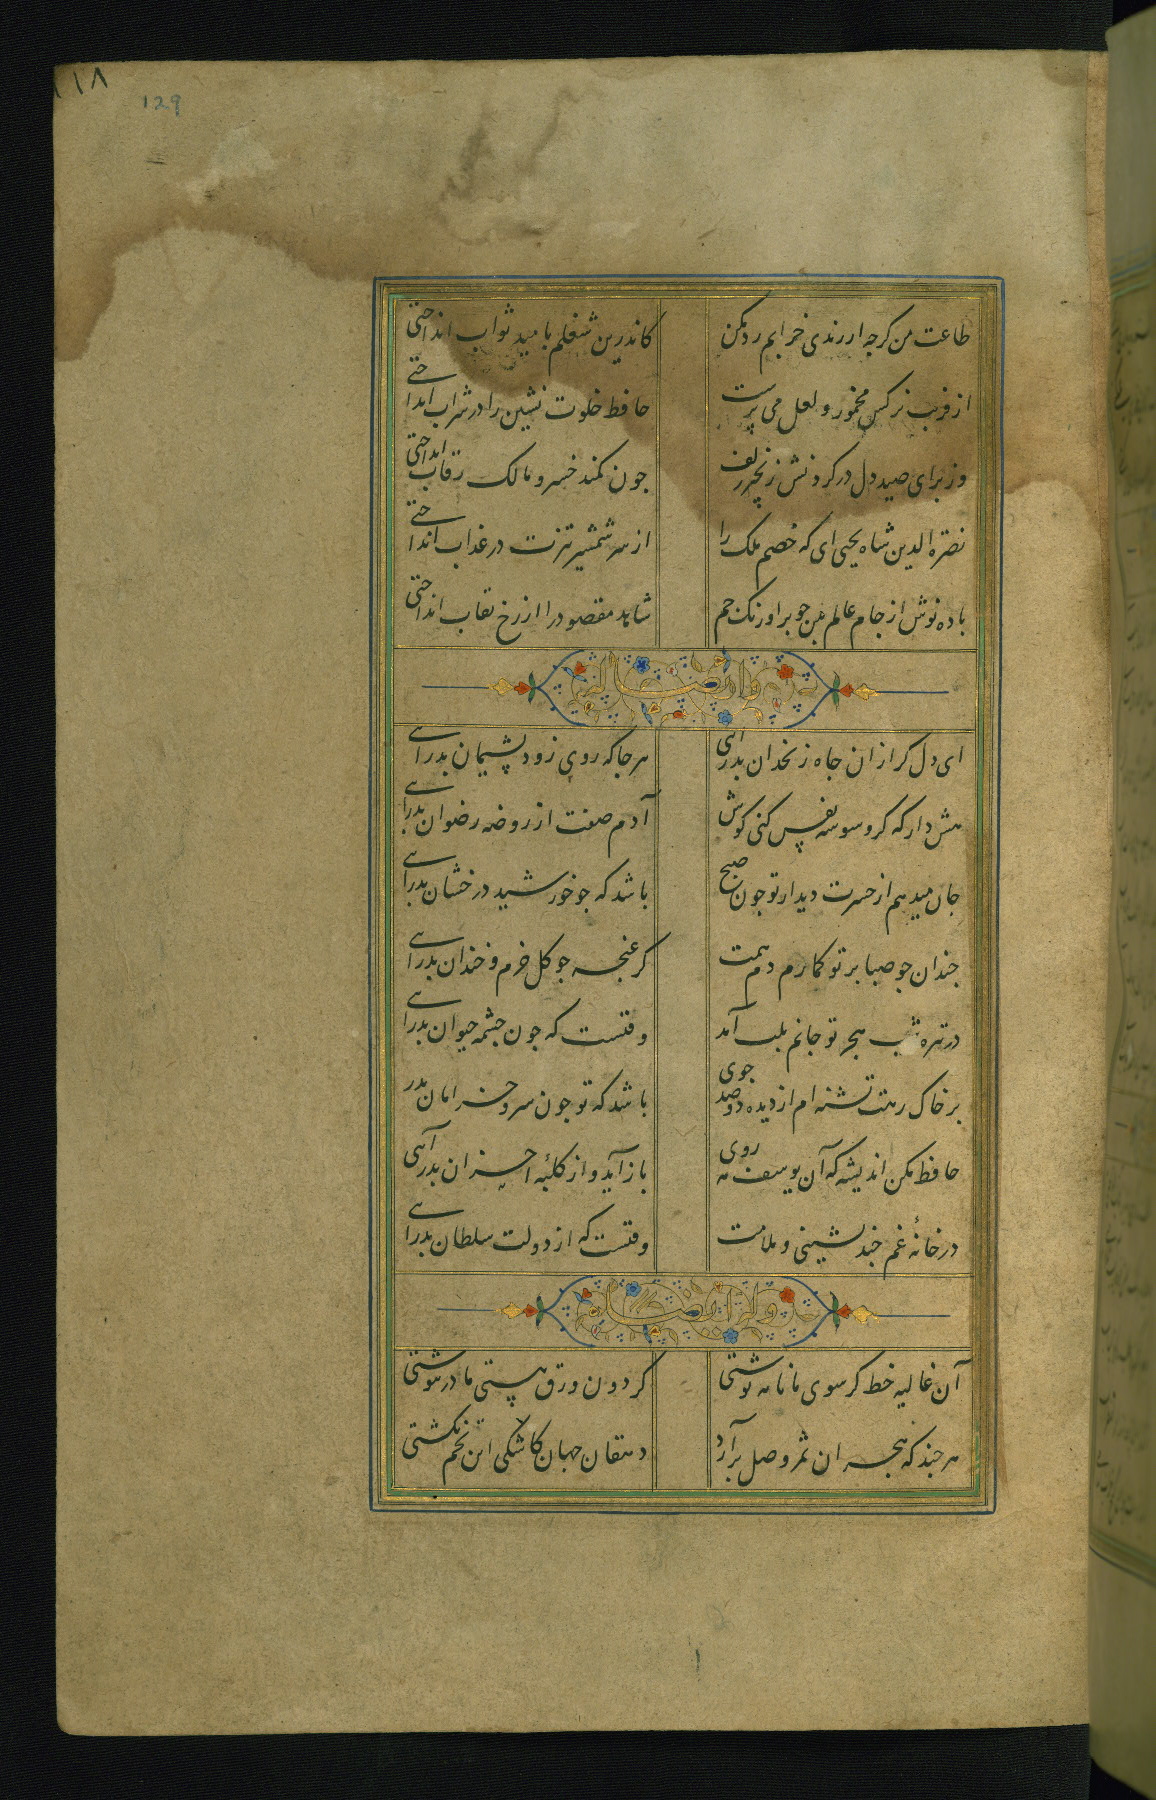 ١١٨
129
طاعت من کرجه از رندی خرابم رد مکن
کاندرین شغلم بامید ثواب انداختی
از فریب نرکس مخمور و لعل می پرست
حافظ خلوت نشین را در شراب انداختی
وز برای صید دل در کردنش زنجیر زلف
جون کمند خسرو مالک رقاب انداختی
نصرة الدین شاه یحیی ای که خصم ملک را
از سر شمشیر تیزت در عذاب انداختی
باده نوش از جام عالم بین جو بر اورنک جم
شاهد مقصود را از رخ نقاب انداختی
وله ایضا
ای دل کر ازان جاه زنخدان بدر آی
هر جا که روی زود پشیمان بدر آیی
هش دار که کر وسوسه نفس کنی کوش
آدم صفت از روضه رضوان بدر آیی
جان میدهم از حسرت دیدار تو جون صبح
باشد که جو خورشید درخشان بدر آیی
جندان جو صبا بر تو کمارم دم همت
کز غنجه جو کل خرم و خندان بدر آیی
در تیره شب هجر تو جانم بلب آمد
وقتست که جون جشمه حیوان بدر آیی
بر خاک رهت تشنه ام از دیده دو صد جوی
باشد که تو جون سرو خرامان بدر
حافظ مکن اندیشه که آن یوسف مه روی
باز آید و از کلبۀ احزان بدر آیی
در خانۀ غم جند نشینی و ملامت
وقتست که از دولت سلطان بدر آیی
وله ایضا
آن غالیه خط کر سوی ما نامه نوشتی
کردون ورق هستی ما در ننوشتی
هر جند که هجران ثمر وصل برآرد
دهقان جهان کاشکی این تخم نکشتی